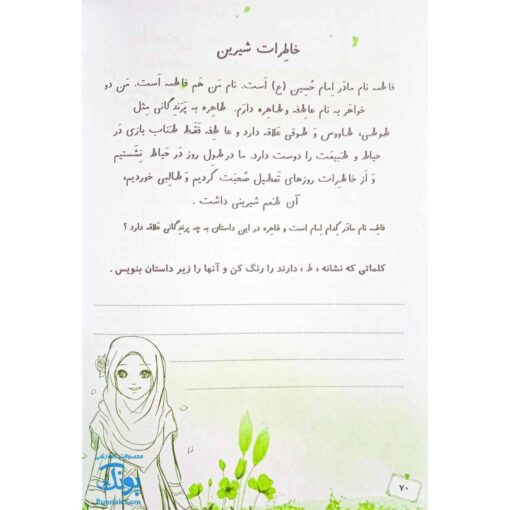 خاطِرات شیرین
فاطمه نام مادَر اِمام حُسِین (ع) اَست. نام مَن هَم فاطمه اَست. مَن دو
خواهَر به نام عاطِفه و طاهِره دارَم. طاهِره به پَرَندِگانی مِثل
طوطی، طاووس وَ طوقی عَلاقه دارد و عاطِفه فَقَط طَناب بازی دَر
حیاط و طَبیعَت را دوست دارد. ما دَر طول روز دَر حَیاط نِشَستیم
وَ اَز خاطِرات روزهای تَعطیل صُحبَت کَردیم وَ طالِبی خوردیم،
آن طَعم شیرینی داشت .
فاطِمه نام مادَر کُدام اِمام است و طاهِره در این داستان به چه پرندِگانی عَلاقه دارد ؟
کلماتی که نشانه « ط » دارند را رنگ کن و آنها را زیر داستان بنویس .
محصولات آموزشی
پونک
Poonak.Com
۷۰